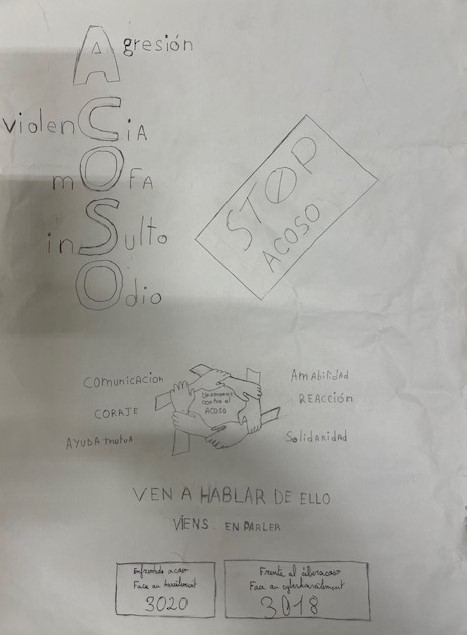 Agresión
violenCiA
mOFA
inSulto
Odio
STOP
ACOSO
comunicacion
CORAJE
AYUDA mutua
contra el
ACOSO
AmAbilidAd
REAcción
Solidaridad
VEN A HABLAR DE ELLO
VIENS EN PARLER
acoso
Face au harcèlement
3020
Frente al ciberacoso
Face au cyberharcèlement
3018